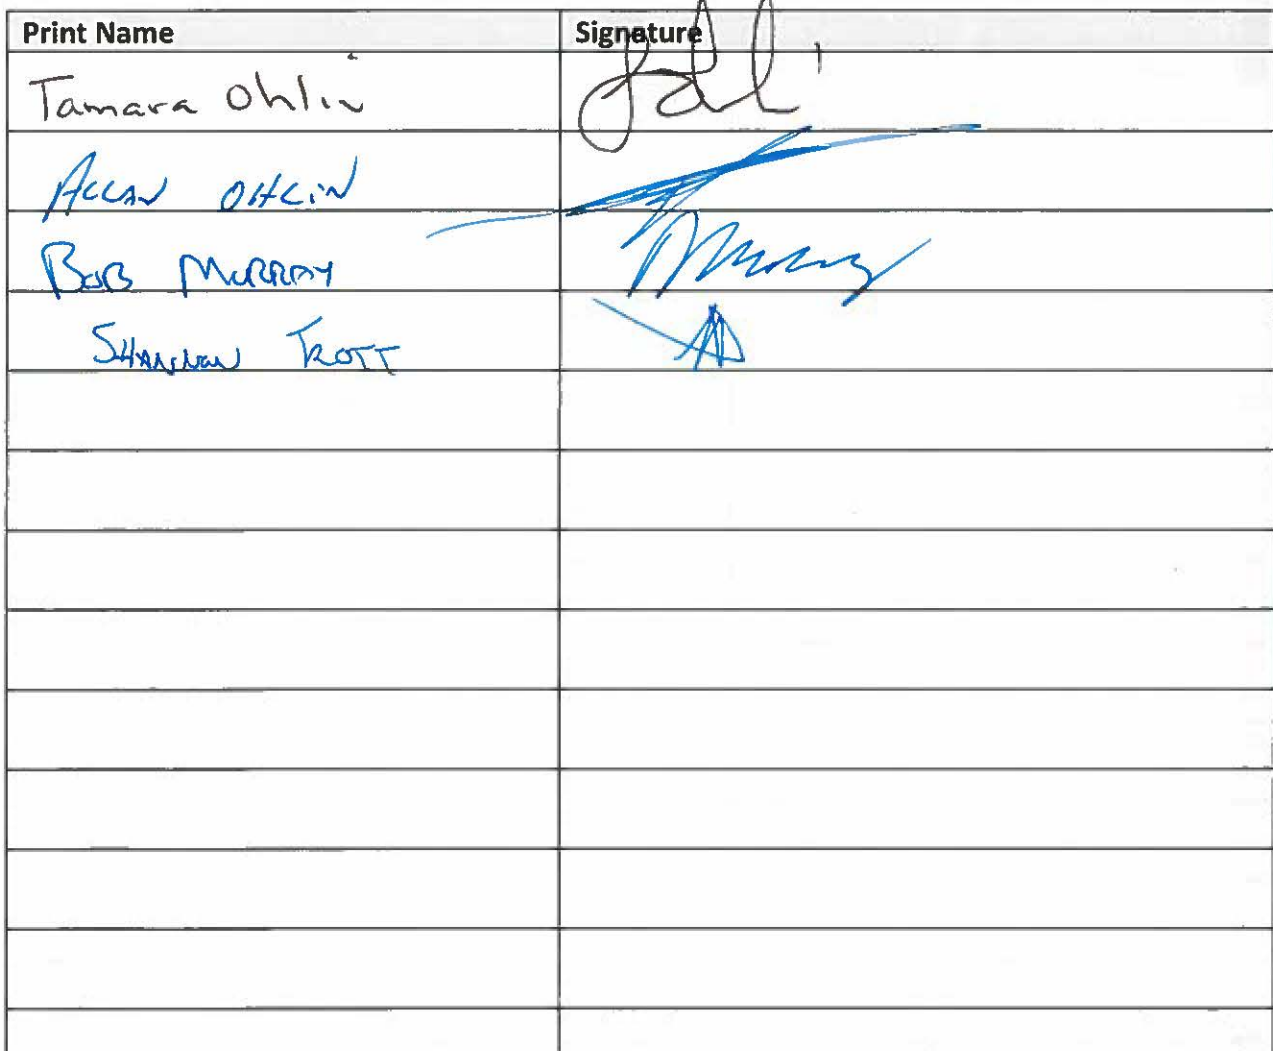 Print Name Signature
Tamara Ohlin
ALLAN OHLIN
BOB MURRAY
SHANNON TROTT